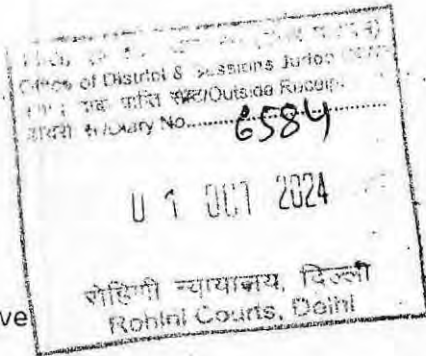 Office of District & Sessions Judge
डाक प्राप्ति /Outside Receipt
डायरी सं/Diary No. 6584
01 OCT 2024
रोहिणी न्यायालय, दिल्ली
Rohini Courts, Delhi
ve